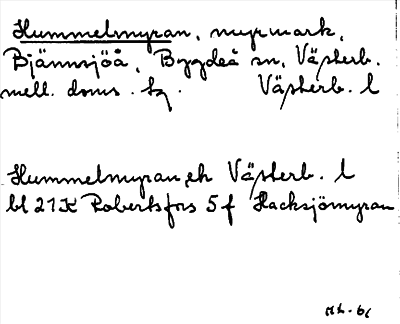 Hummelmyran, myrmark,
Bjännsjöå, Bygdeå sn, Västerb.
mell. doms. hg. Västerb. l
Hummelmyran, ek Västerb. l
bl 21K Robertsfors 5f Hacksjömyran